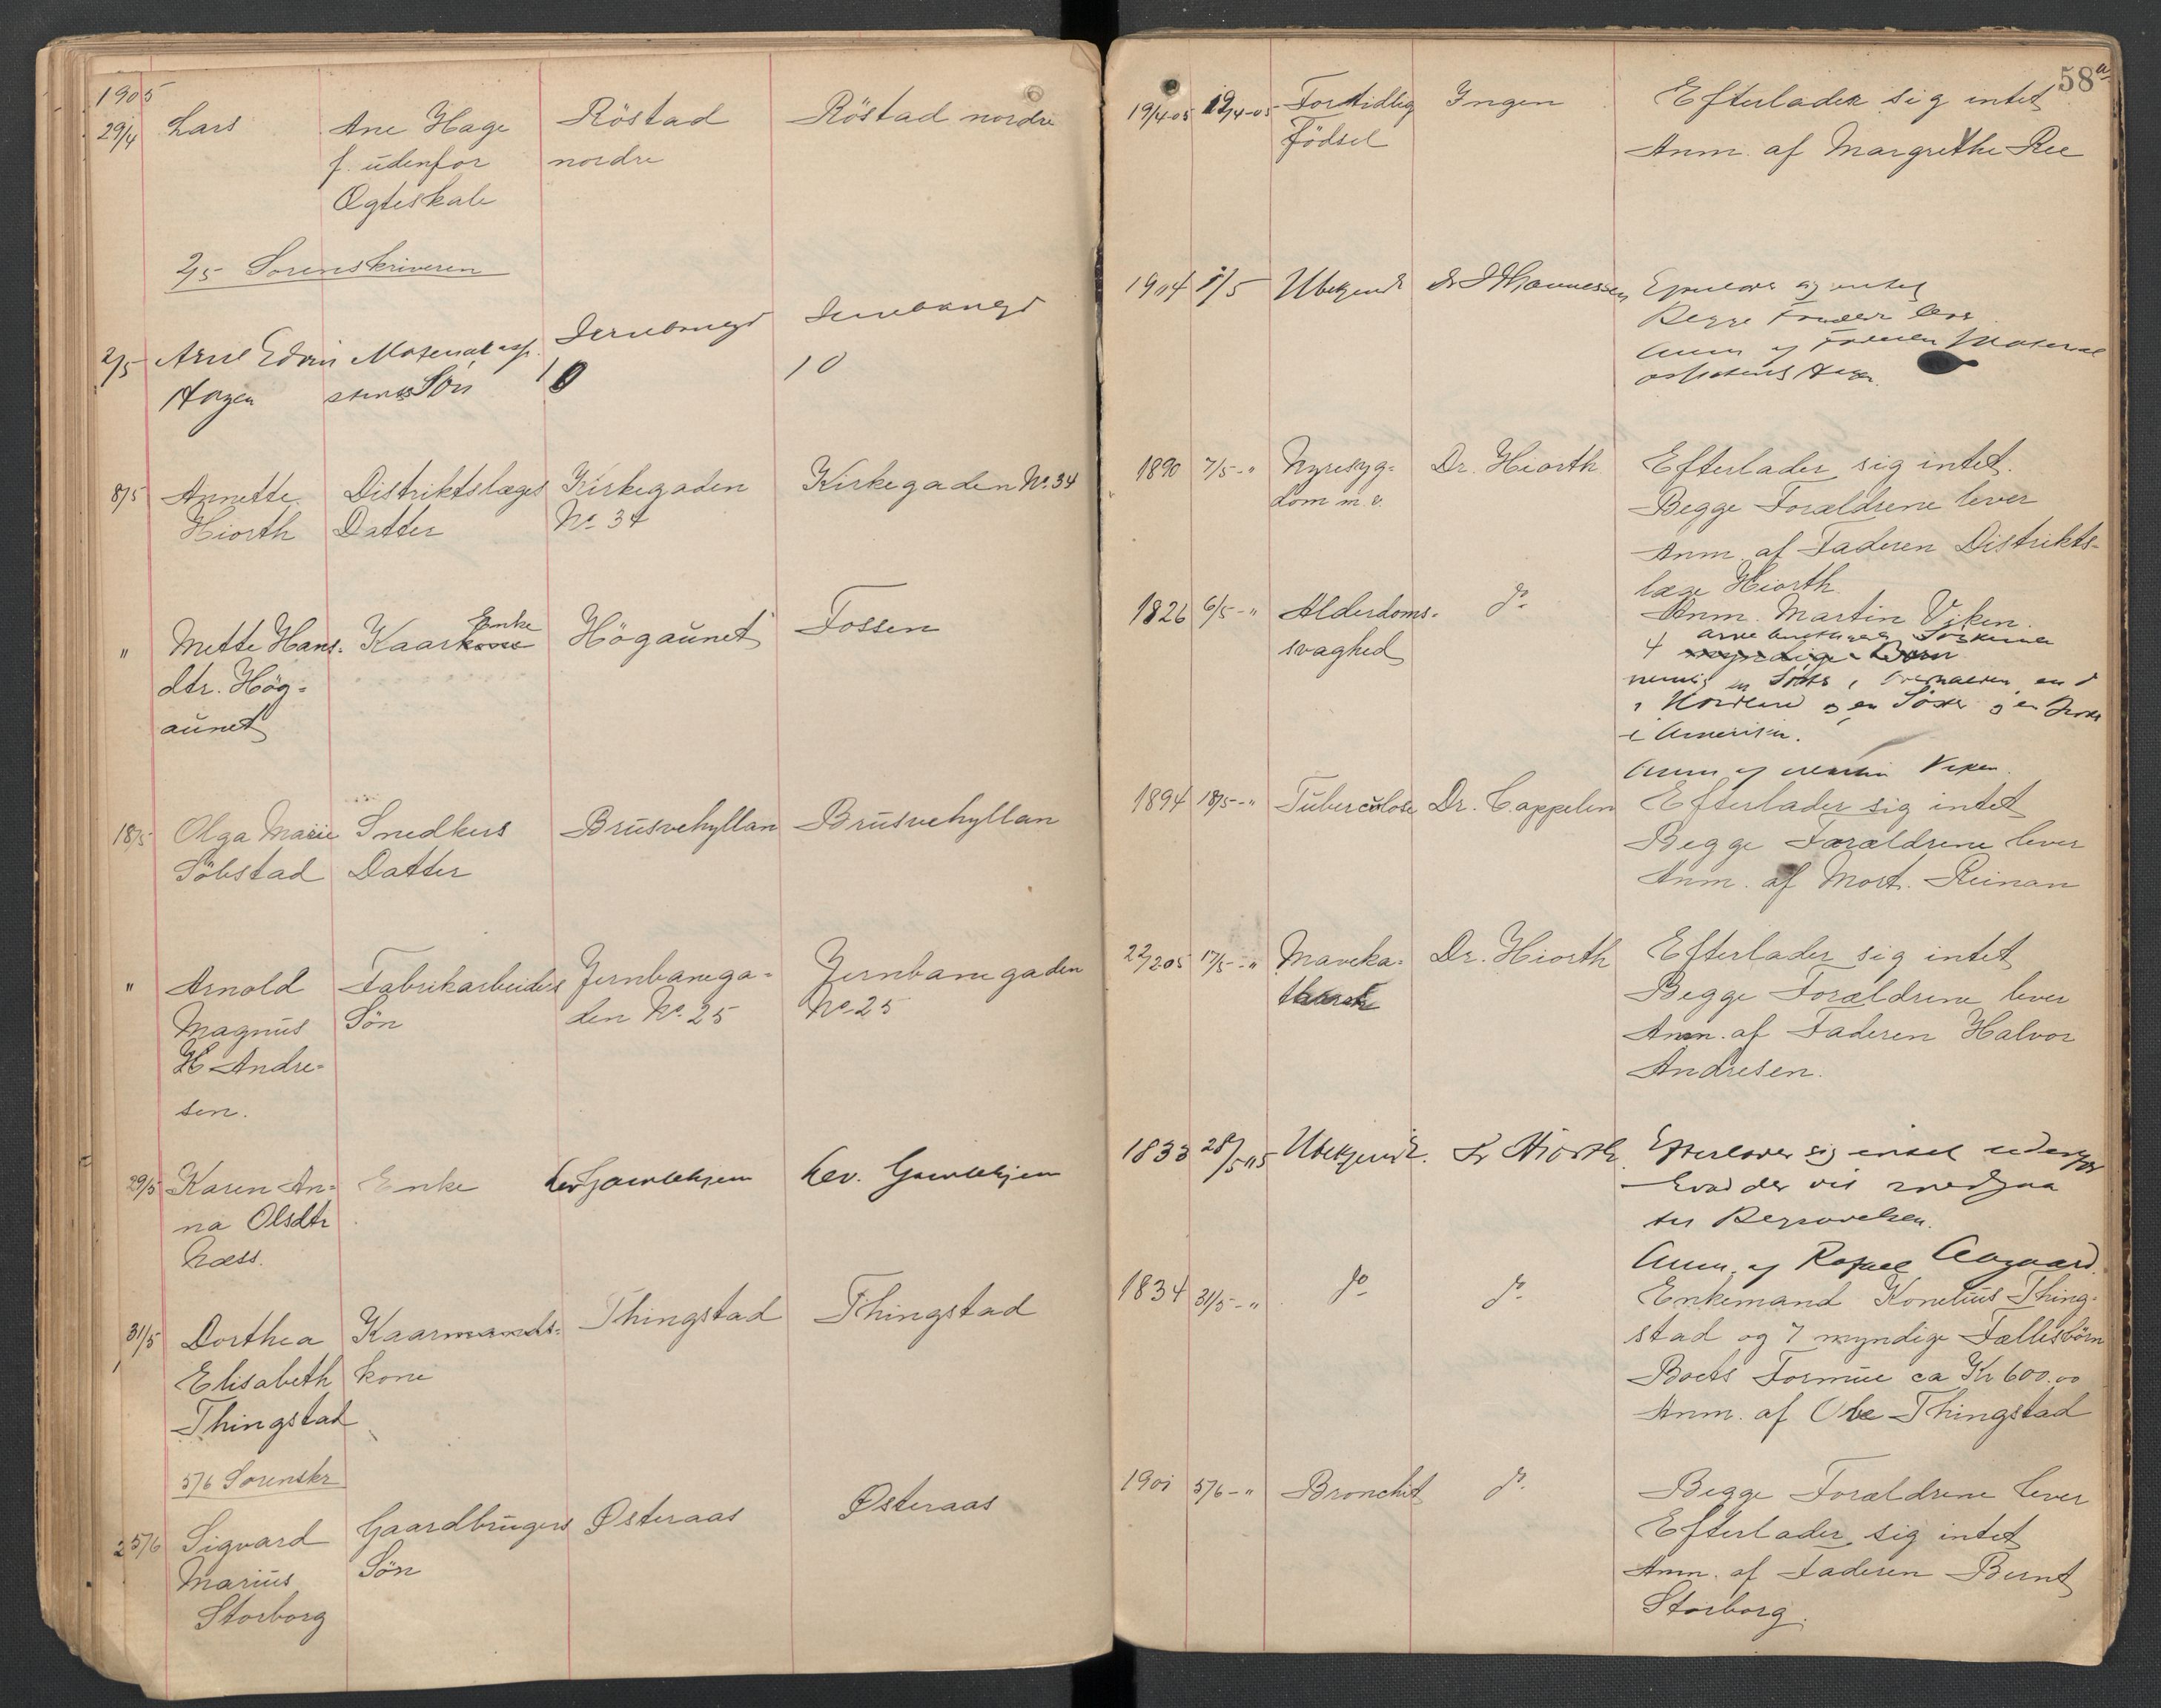 1905
29/4 Lars Ane Hage Röstad Röstad nordre
f. udenfor nordre
Ægteskab
2/5 Sorenskriveren
2/5 Arne Edvin Jernbanegt Jernbanegt
Hagen Sön 10 10
8/5 Annette Distriktslæges Kirkegaden Kirkegaden No. 34
Hiorth Datter No 34
" Mette Hans- Kaarkone Enke Högaunet Fossen
dtr. Hög-
aunet
18/5 Olga Marie Snedkers Brusvehyllan Brusvehyllan
Söbstad Datter
" Arnold Fabrikarbeiders Jernbanega- Jernbanegaden
Magnus Sön den No. 25 No 25
H Andre-
sen.
29/5 Karen An- Enke Lev. Gamlehjem Lev. Gamlehjem
na Olsdtr
Næss.
31/5 Dorthea Kaarmands- Thingstad Thingstad
Elisabeth kone
Thingstad
5/6 Sorenskr
5/6 Sigvard Gaardbrugers Østeraas Østeraas
Marius Sön
Storborg
58a
19/4 05 19/4-05 Fortidlig Ingen Efterlader sig intet
Födsel Anm. af Margrethe Ree
1904 1/5 Ubekjendt Dr Efterlader sig intet
Begge Forældre lever
Anm af Faderen Material
1890 7/5-" Nyresyg- Dr. Hiorth Efterlader sig intet.
dom m.v. Begge Forældrene lever
Anm. af Faderen Distrikts-
læge Hiorth
1826 6/5-" Alderdoms- do Anm. Martin Viken.
svaghed 4 Söskende
nemlig en Söster i Overhalden, en do
i Nordland og en Söster og en Broder
i Amerika.
Anm af Martin Viken.
1894 18/5-" Tuberculose Dr. Cappelen Efterlader sig intet
Begge Forældrene lever
Anm. af Mort. Reinan
22/2 05 17/5-" Maveka- Dr. Hiorth Efterlader sig intet
tharh Begge Forældrene lever
Anm. af Faderen Halvor
Andresen.
1833 28/5 05 Ubekjendt. Dr Hiorth Efterlader sig intet udenfor
hvad der vil medgaa
til Begravelsen.
Anm. af Aagaard.
1834 31/5-" do do Enkemand Konelius Thing-
stad og 7 myndige Fællesbörn
Boets Formue ca Kr 600.00
Anm. af Ole Thingstad
1901 5/6-" Bronchit do Begge Forældrene lever
Efterlader sig intet
Anm. af Faderen Bernt
Storborg.